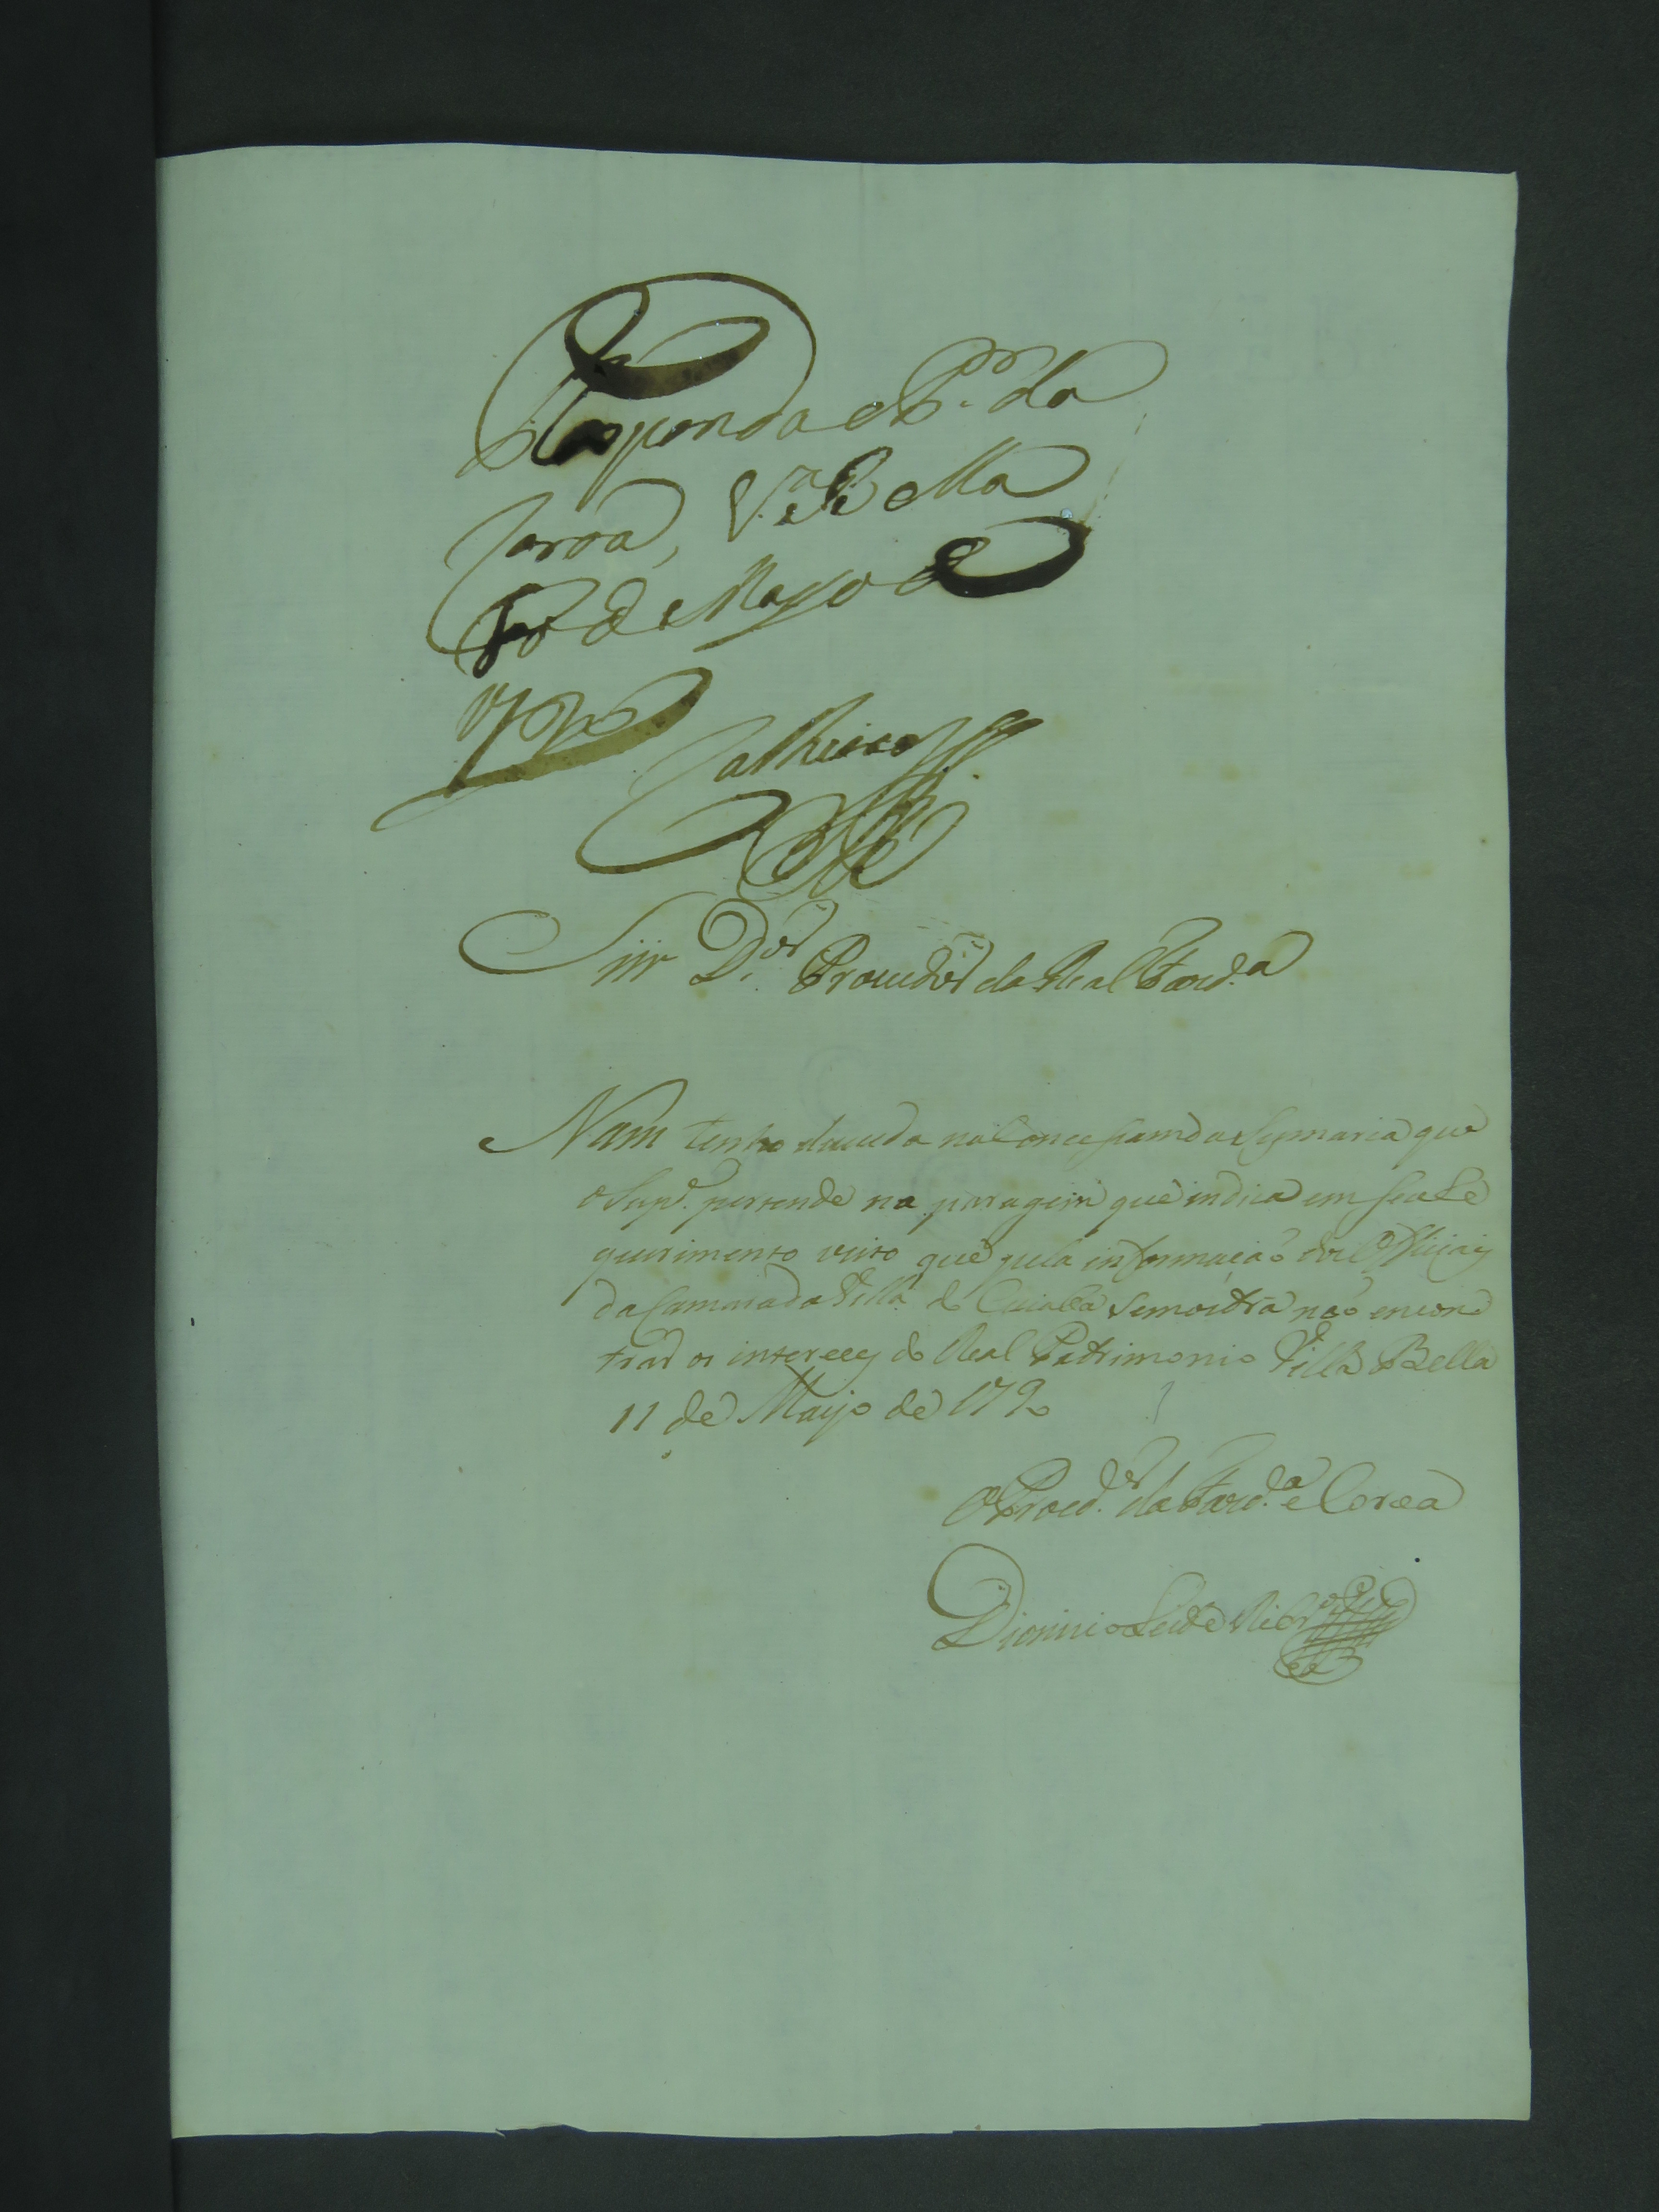 Responda o P.or da
Coroa, V.a Bella
de Mayo de
1790
Snr D.or Proved.or da Real Fazd.a
Nam tenho duvida na Concessam da Sesmaria que
o Sup.e pertende na paragem que indica em seu Re
querimento visto que pela informação dos Officiaes
da Camara da Villa do Cuiabá se mostra não encon
trar os interesses do Real Patrimonio Villa Bella
11 de Mayo de 1790
O Procd.or da Fazd.a e Coroa
Dionizio Leite Ribr.o